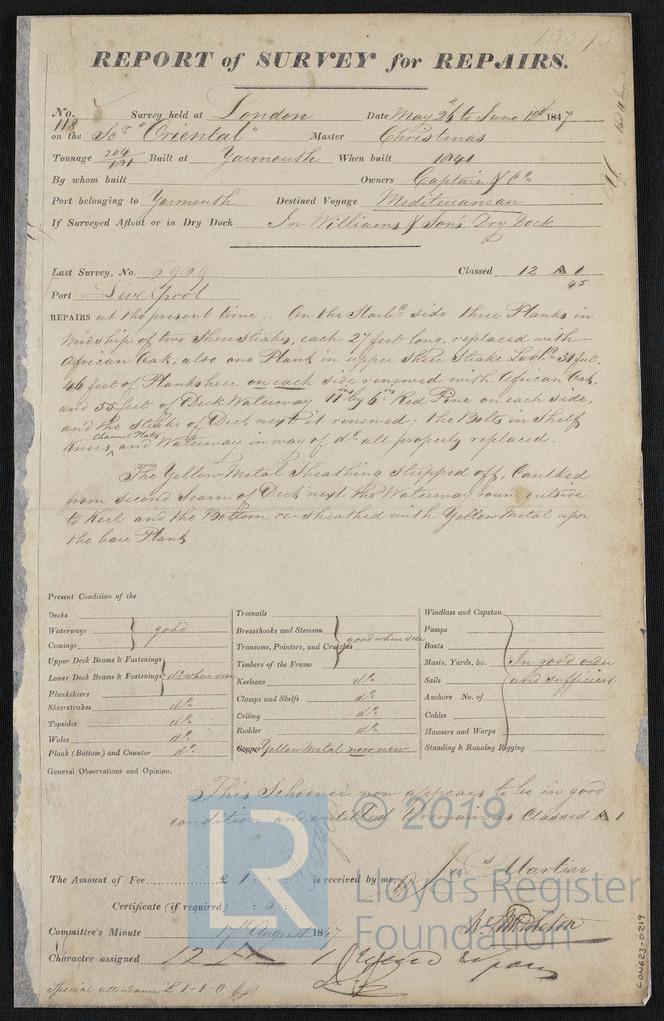 REPORT of SURVEY for REPAIRS.
No. 118 Survey held at London Date May 26th to June 1847
on the Scr "Oriental" Master Christmas
Tonnage 204/181 Built at Yarmouth When built 1841
By whom built Owners Captain & Co
Port belonging to Yarmouth Destined Voyage Mediterranean
If Surveyed Afloat or in Dry Dock In Williams & Sons Dry Dock
Last Survey, No. 6909 Classed 12 A 1
45
Port Liverpool
REPAIRS at the present time. On the Starbd side three Planks in
Midship of two Sheerstrakes, each 27 feet long, replaced with
African Oak; also one Plank in upper Sheer Strake 31 feet.
46 feet of Planksheer on each side renewed with African Oak,
and 55 feet of Deck Waterway 11 by 6 Red Pine on each side,
and the Strake of Deck next it renewed; the Bolts in Shelf
Channel Plates
Knees, and Waterway in way of do all properly replaced.
The Yellow Metal Sheathing stripped off, Caulked
from second Seam of Deck next the Waterway round outside
to Keel and the Bottom re-sheathed with Yellow Metal upon
the bare Plank
Present Condition of the
Decks
Waterways good
Comings
Upper Deck Beams & Fastenings
Lower Deck Beams & Fastenings do when seen
Planksheers
Sheerstrakes do
Topsides do
Wales do
Plank (Bottom) and Counter do
Treenails
Breasthooks and Stemson good when seen
Transoms, Pointers, and Crutches
Timbers of the Frame
Keelsons do
Clamps and Shelfs do
Ceiling do
Rudder do
Copper Yellow Metal now new
Windlass and Capstan
Pumps
Boats
Masts, Yards, &c. In good order
Sails and sufficient
Anchors No. of
Cables
Hawsers and Warps
Standing & Running Rigging
General Observations and Opinion.
This Schooner now appears to be in good
condition and entitled to remain as Classed A 1
The Amount of Fee £ 1 : : is received by me,
Jas Martin
Certificate (if required) : 5 :
Committee's Minute 17th August 1847
Character assigned 12 A 1
Special attendance £ 1-1-0
LON623-0219
LR
© 2019
Lloyd's Register
Foundation